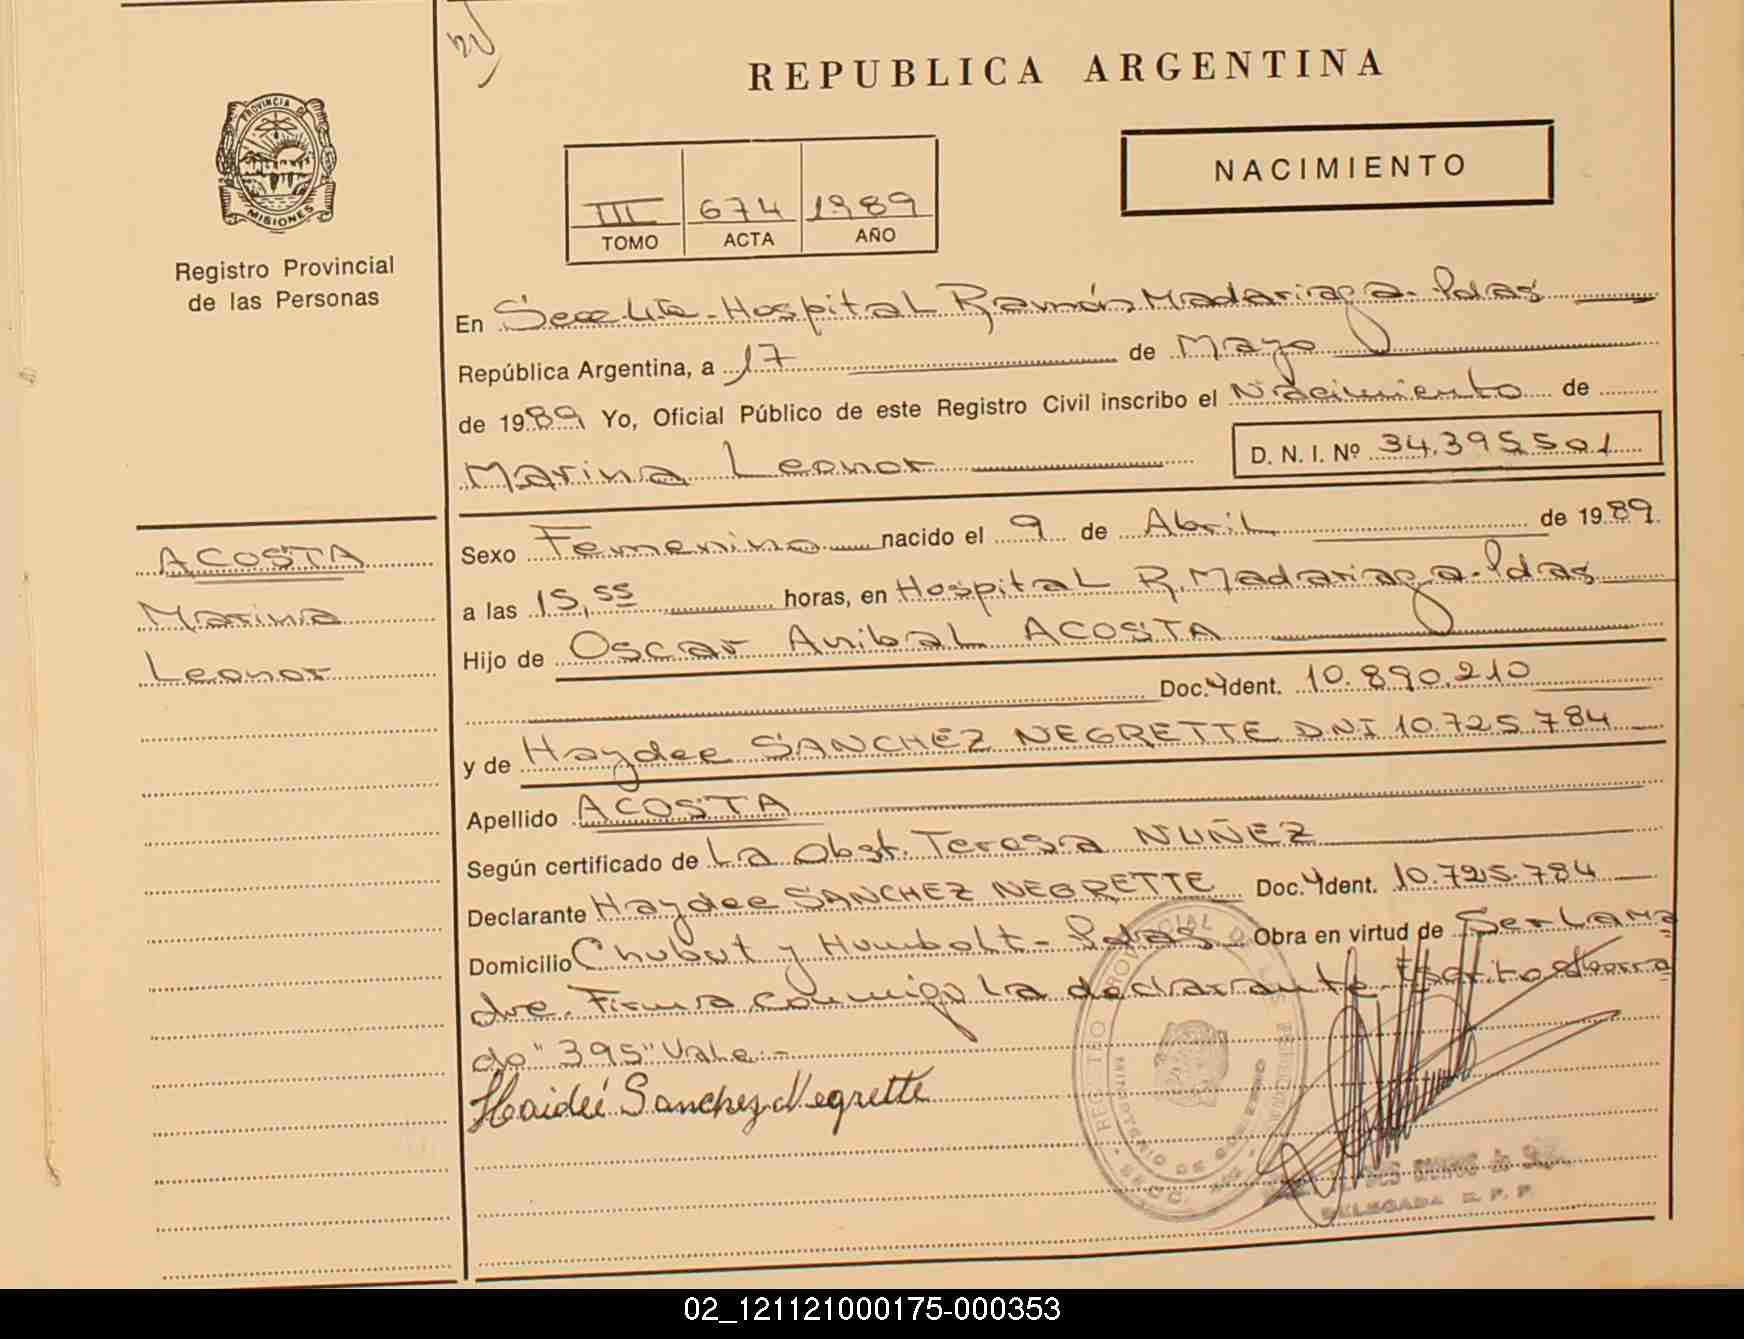 REPUBLICA ARGENTINA
PROVINCIA DE
MISIONES
Registro Provincial
de las Personas
III 674 1989
TOMO ACTA AÑO
NACIMIENTO
En Secc 4ta - Hospital Ramón Madariaga - Pdas
República Argentina, a 17 de Mayo
de 1989 Yo, Oficial Público de este Registro Civil inscribo el Nacimiento de
Marina Leonor D. N. I. Nº 34.395501
ACOSTA
Marina
Leonor
Sexo Femenino nacido el 9 de Abril de 1989
a las 15,55 horas, en Hospital R. Madariaga - Pdas
Hijo de Oscar Anibal ACOSTA
Doc. Ident. 10.890.210
y de Haydee SANCHEZ NEGRETTE DNI 10.725.784
Apellido ACOSTA
Según certificado de La Obst. Teresa NUÑEZ
Declarante Haydee SANCHEZ NEGRETTE Doc. Ident. 10.725.784
Domicilio Chubut y Humbolt - Pdas Obra en virtud de Ser La ma
dre. Firma conmigo La declarante. Escrito s/borra
do "395" Vale.-
Haideé Sanchez Negrette
REGISTRO PROVINCIAL DE LAS PERSONAS
MINISTERIO DE GOBIERNO
DELEGADA R. P. P.
02_121121000175-000353